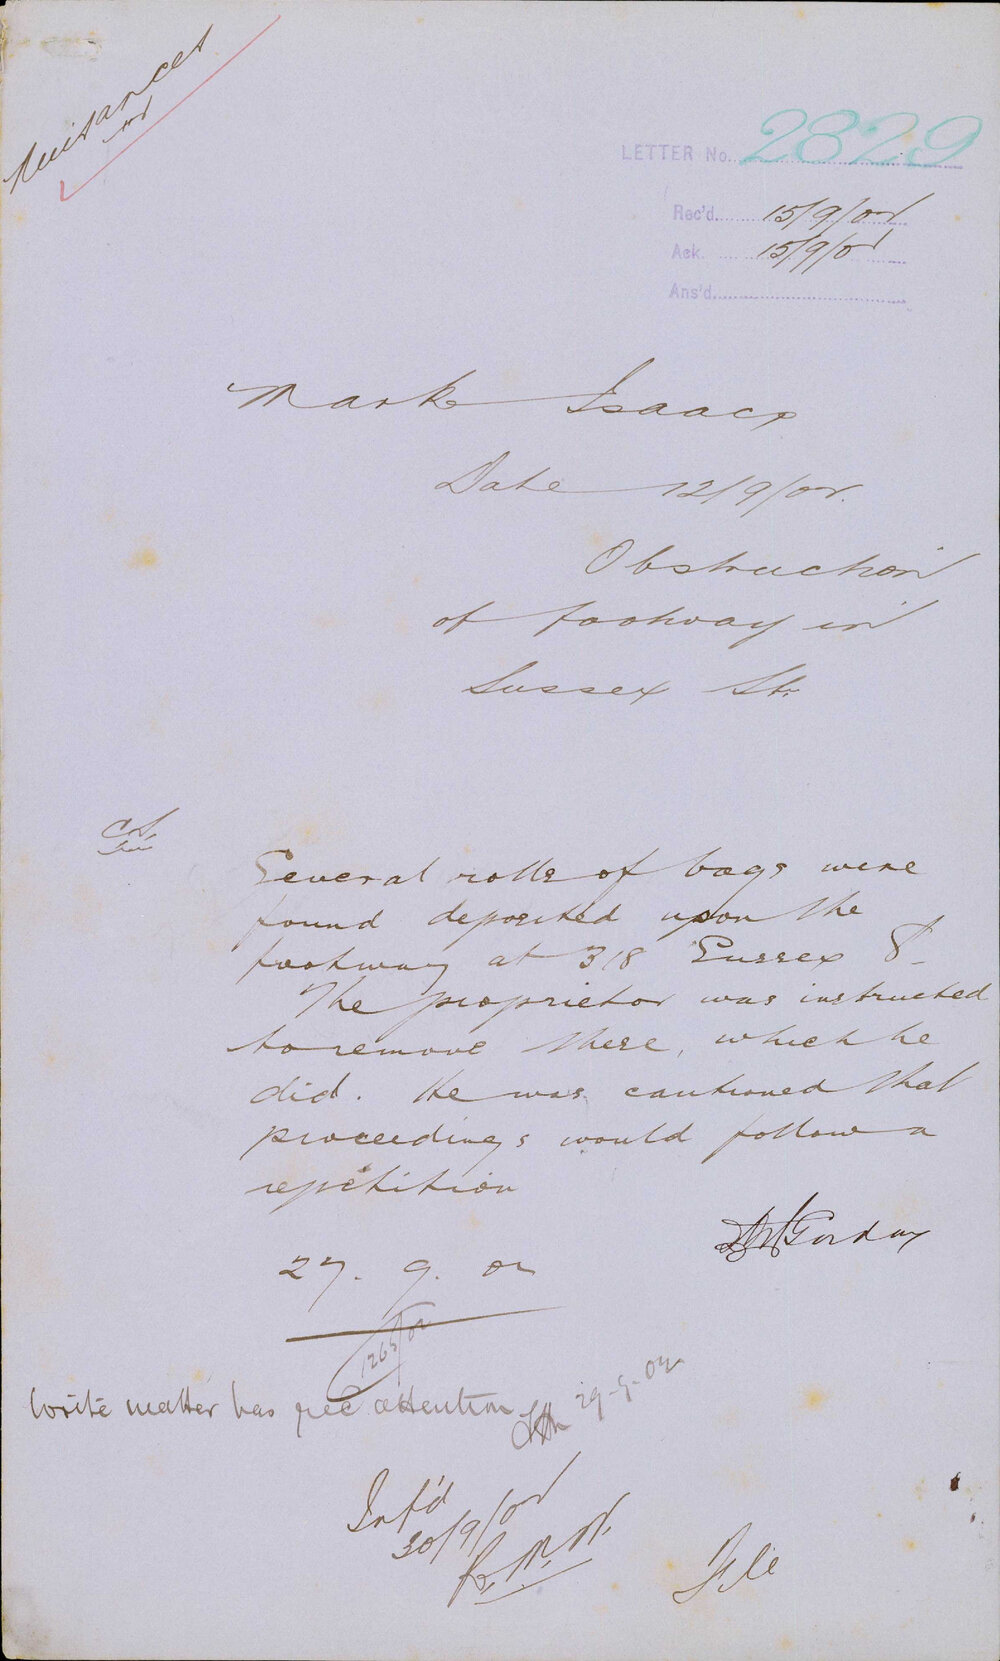 Nuisances
02
LETTER No. 2829
Rec'd. 15/9/02
Ack. 15/9/02
Ans'd.
Mark Isaacs
Date 12/9/02.
Obstruction
of footway in
Sussex St.
Several rolls of bags were
found deposited upon the
footway at 318 Sussex St
The proprietor was instructed
to remove these, which he
did. He was cautioned that
proceedings would follow a
repetition
27. 9. 02
1265/02
Write matter has rec attention
29-9-02
Inf'd
30/9/02
File